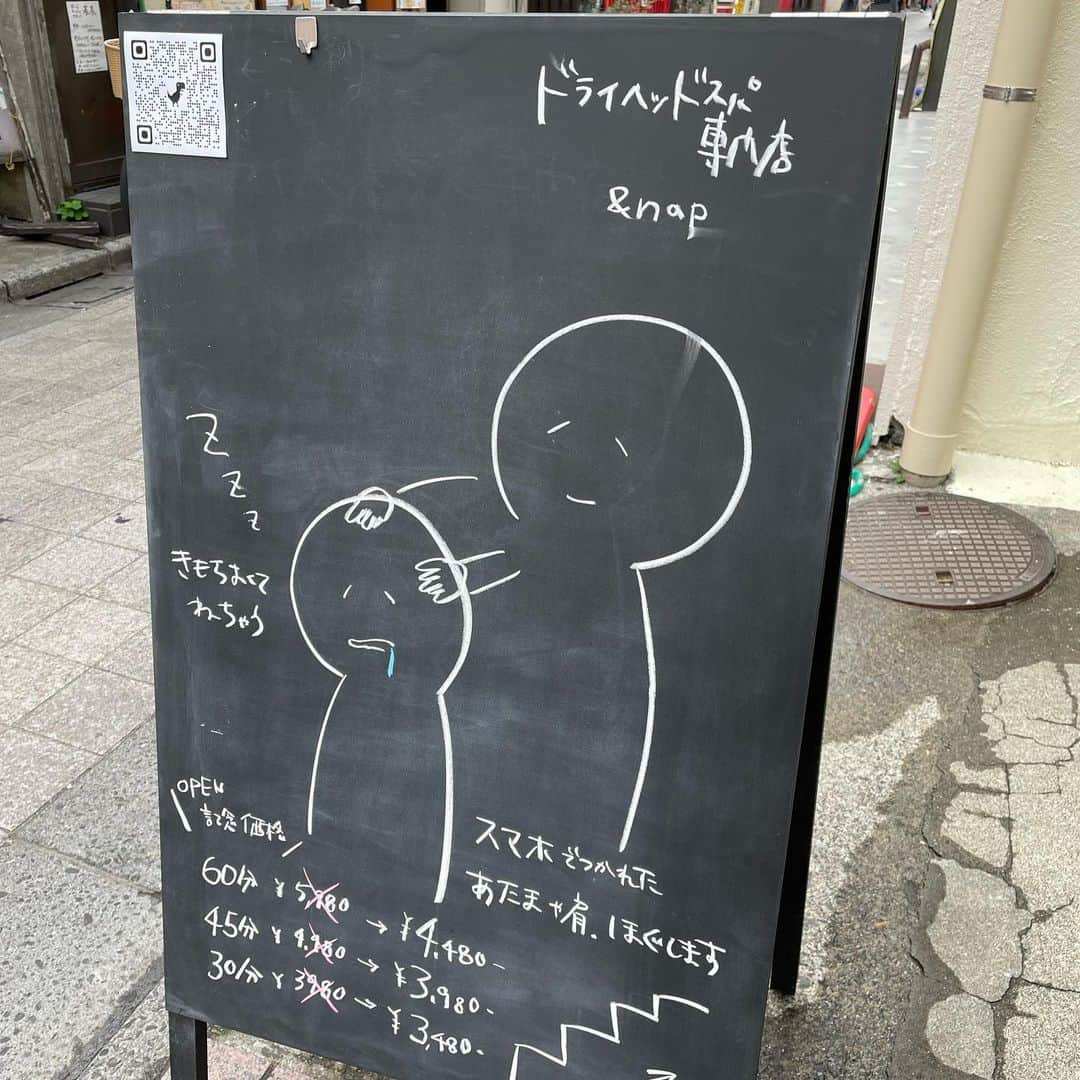 ドライヘッドスパ
専門店
&nap
Z
z
z
きもちよくて
ねちゃう
OPEN
記念価格
60分 ¥5,980 → ¥4,480-
45分 ¥4,980 → ¥3,980-
30分 ¥3980 → ¥3,480-
スマホでつかれた
あたまや肩、ほぐします